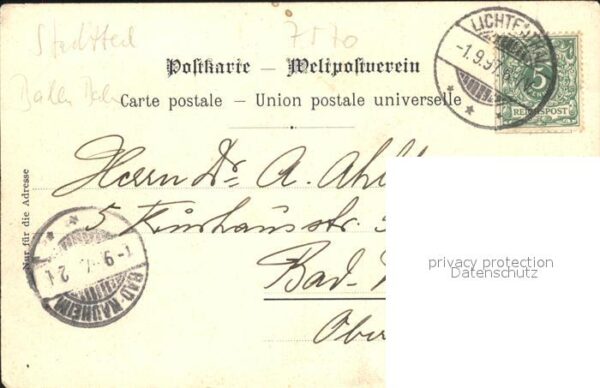 Stadtteil 7570
Baden
Postkarte — Weltpostverein
Carte postale – Union postale universelle
LICHTENTHAL
-1.9.97.
5
REICHSPOST
Nur für die Adresse
Herrn Dr. A. Ahl
5 Kurhausstr.
Bad-
Ober
BAD-NAUHEIM
privacy protection
Datenschutz